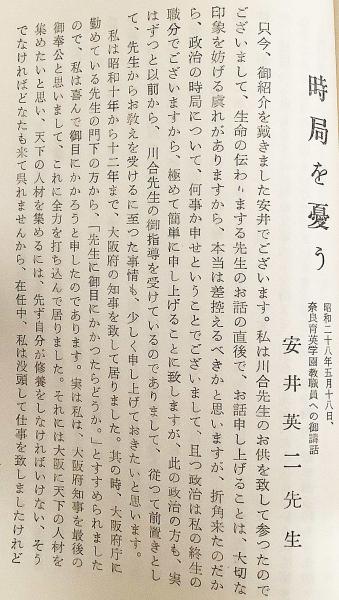 時局を憂う
昭和二十八年五月十八日、
奈良育英学園教職員への御講話
安井英二先生
只今、御紹介を戴きました安井でございます。私は川合先生のお供を致して参つたので
ございまして、生命の伝わりまする先生のお話の直後で、お話申し上げることは、大切な
印象を妨げる虞れがありますから、本当は差控えるべきかと思いますが、折角来たのだか
ら、政治の時局について、何事か申せということでございまして、且つ政治は私の終生の
職分でございますから、極めて簡単に申し上げることに致しますが、此の政治の方も、実
はずつと以前から、川合先生の御指導を受けているのでありまして、従つて前置きとし
て、先生からお教えを受けるに至つた事情も、少しく申し上げておきたいと思います。
私は昭和十年から十二年まで、大阪府の知事を致して居りました。其の時、大阪府庁に
勤めている先生の門下の方から、「先生に御目にかかつたらどうか。」とすすめられました
ので、私は喜んで御目にかかろうと申したのであります。実は私は、大阪府知事を最後の
御奉公と思いまして、これに全力を打ち込んで居りました。それには大阪に天下の人材を
集めたいと思い、天下の人材を集めるには、先ず自分が修養をしなければいけない、そう
でなければどなたも来て呉れませんから、在任中、私は没頭して仕事を致しましたけれど